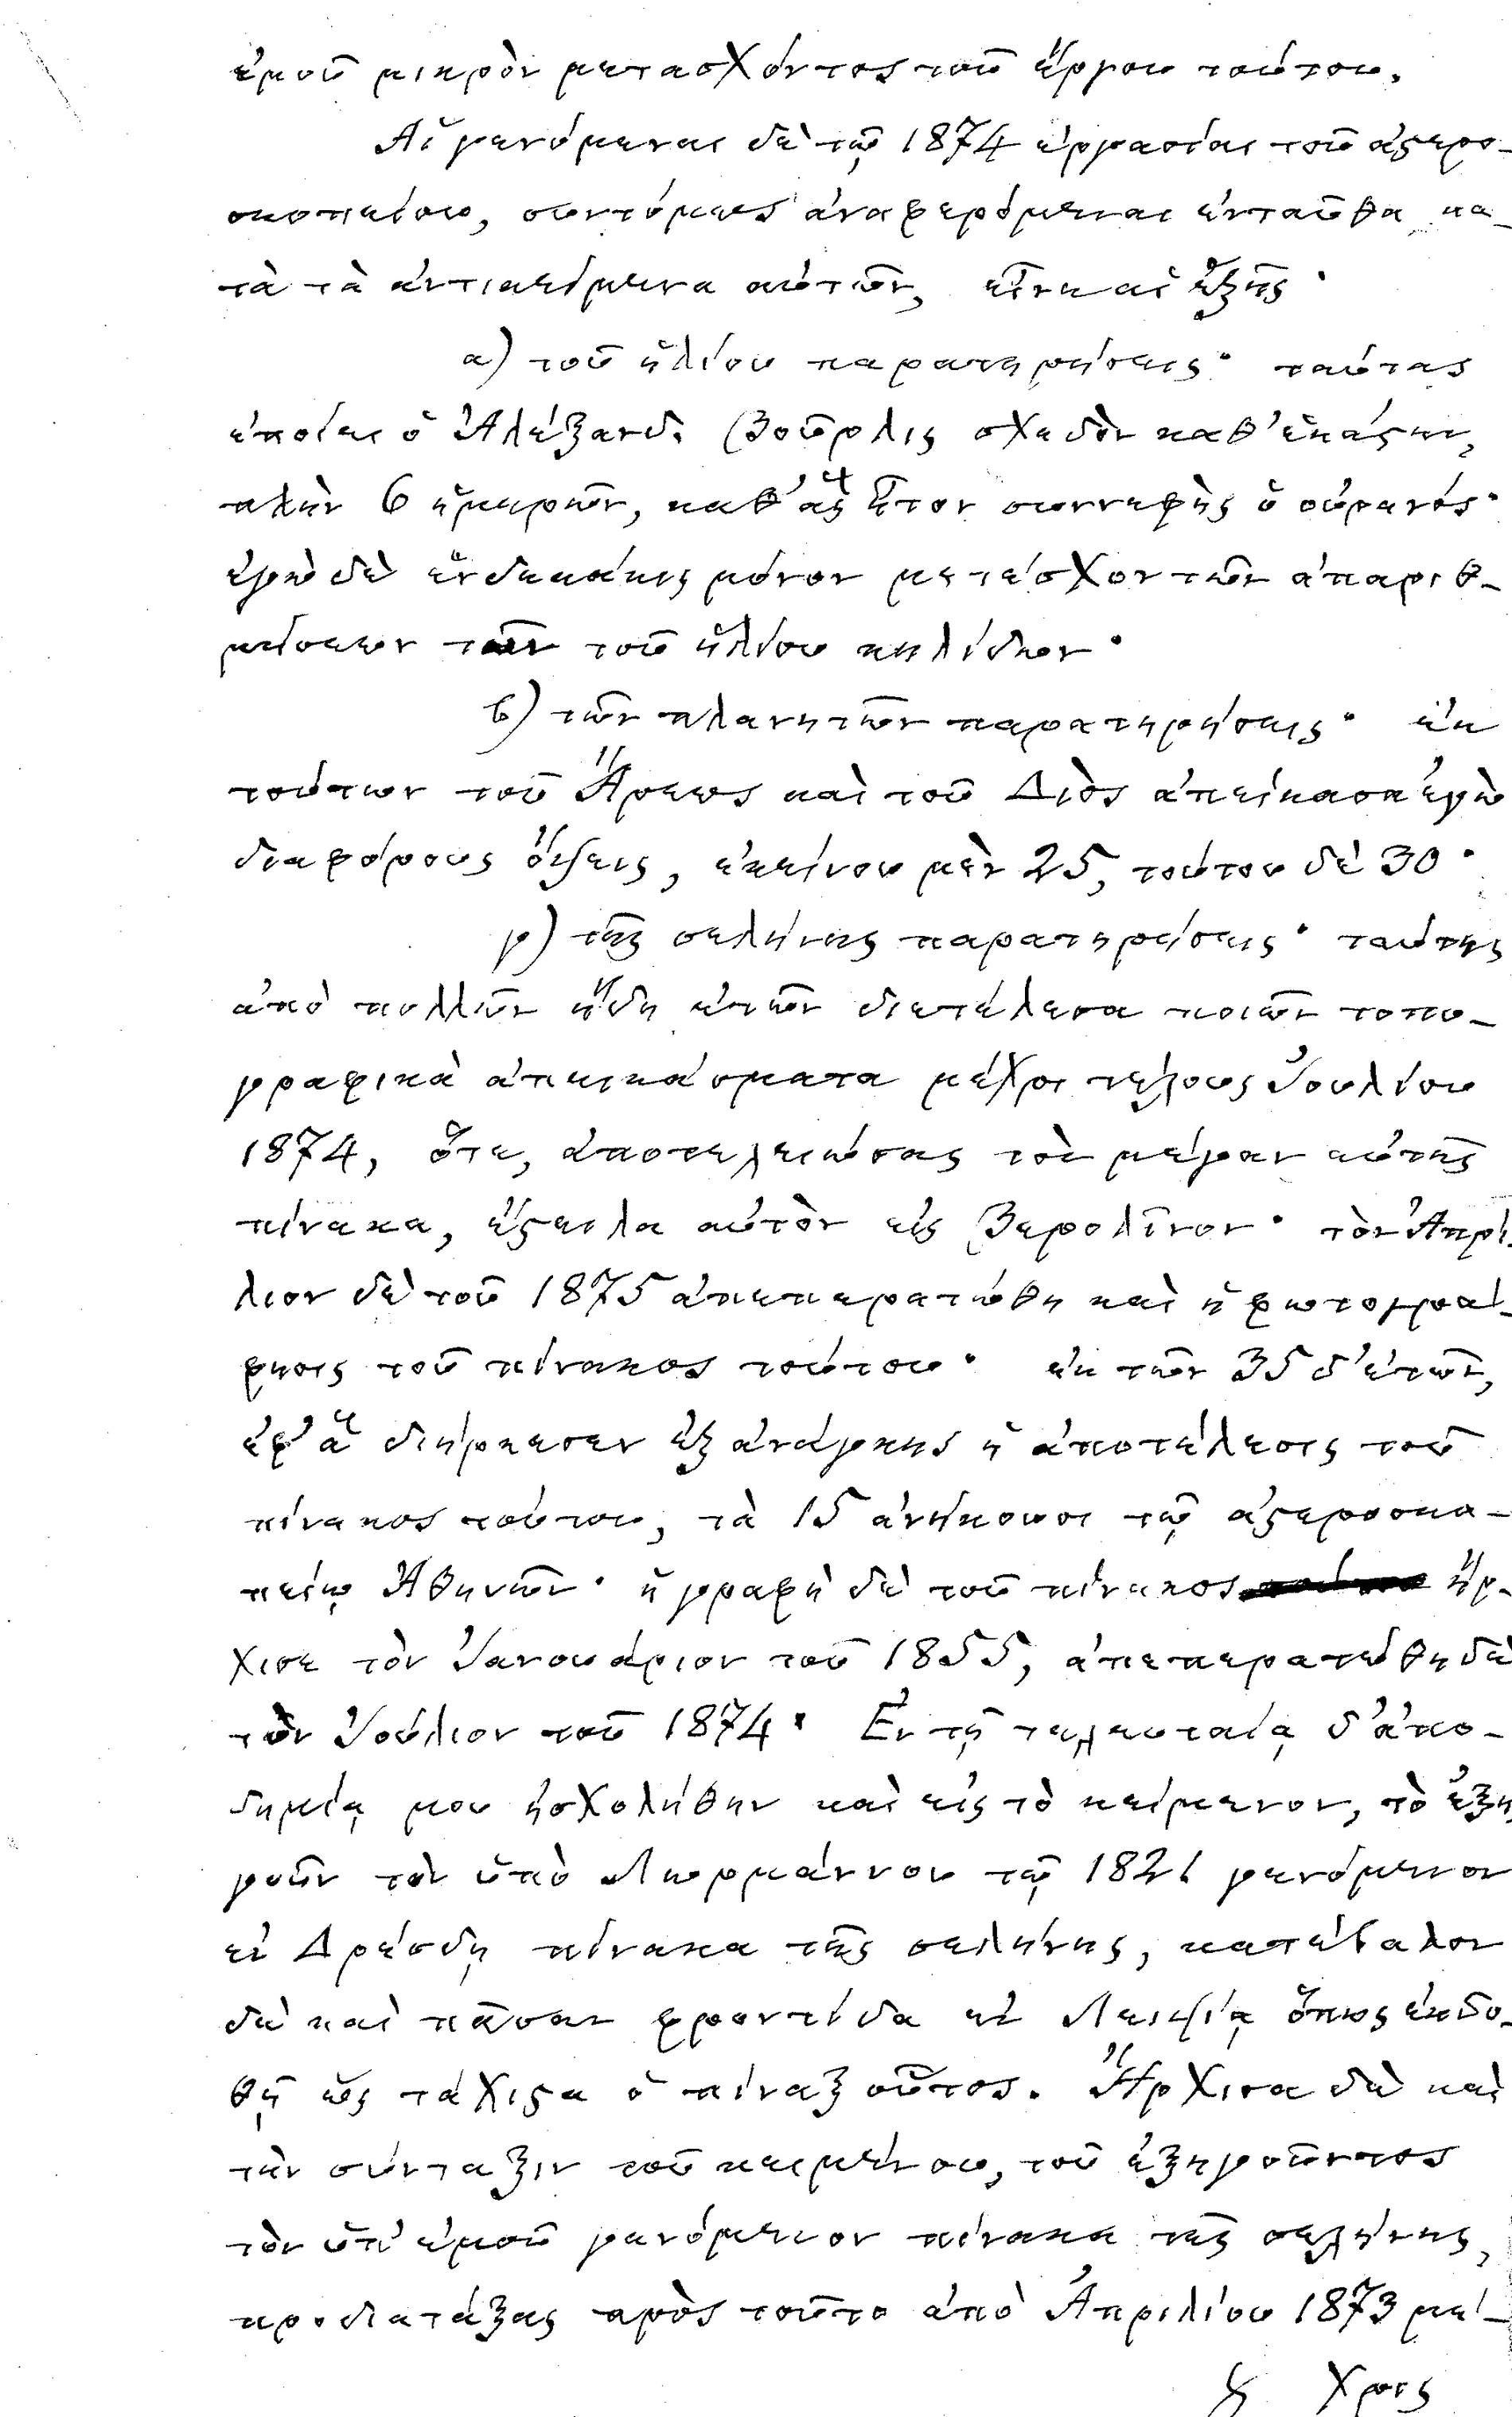 ἐμοῦ μικρὸν μετασχόντος τοῦ ἔργου τούτου.
Αἱ γενόμεναι δὲ τῷ 1874 ἐργασίαι τοῦ ἀϛερο-
σκοπείου, συντόμως ἀναφερόμεναι ἐνταῦθα κα-
τὰ τὰ ἀντικείμενα αὐτῶν, εἶναι αἱ ἑξῆς·
α) τοῦ ἡλίου παρατηρήσεις· ταύτας
ἐποίει ὁ Ἀλέξανδ. Βοῦρλις σχεδὸν καθ' ἑκάϛην,
πλὴν 6 ἡμερῶν, καθ' ἃς ἦτον συννεφὴς ὁ οὐρανός·
ἐγὼ δὲ ἑνδεκάκις μόνον μετέσχον τῶν ἀπαριθ-
μήσεων τῶν τοῦ ἡλίου κηλίδων·
β) τῶν πλανητῶν παρατηρήσεις· ἐκ
τούτων τοῦ Ἄρεως καὶ τοῦ Διὸς ἀπείκασα ἐγὼ
διαφόρους ὄψεις, ἐκείνου μὲν 25, τούτου δὲ 30·
γ) τῆς σελήνης παρατηρήσεις· ταύτης
ἀπὸ πολλῶν ἤδη ἐτῶν διετέλεσα ποιῶν τοπο-
γραφικὰ ἀπεικάσματα μέχρι τέλους Ἰουλίου
1874, ὅτε, ἀποτελειώσας τὸν μέγαν αὐτῆς
πίνακα, ἔϛειλα αὐτὸν εἰς Βερολῖνον· τὸν Ἀπρί-
λιον δὲ τοῦ 1875 ἀπεπερατώθη καὶ ἡ φωτογρά-
φησις τοῦ πίνακος τούτου· ἐκ τῶν 35 δ' ἐτῶν,
ἐφ' ἃ διήρκεσεν ἐξ ἀνάγκης ἡ ἀποτέλεσις τοῦ
πίνακος τούτου, τὰ 15 ἀνήκουσι τῷ ἀϛεροσκο-
πείῳ Ἀθηνῶν· ἡ γραφὴ δὲ τοῦ πίνακος ἤρ-
χισε τὸν Ἰανουάριον τοῦ 1855, ἀπεπερατώθη δὲ
τὸν Ἰούλιον τοῦ 1874· Ἐν τῇ τελευταίᾳ δ' ἀπο-
δημίᾳ μου ἠσχολήθην καὶ εἰς τὸ κείμενον, τὸ ἐξη
γοῦν τὸν ὑπὸ Λωρμάννου τῷ 1821 γενόμενον
ἐν Δρέσδῃ πίνακα τῆς σελήνης, κατέβαλον
δὲ καὶ πᾶσαν φροντίδα ἐν Λειψίᾳ ὅπως ἐκδο-
θῇ ὡς τάχιϛα ὁ πίναξ οὗτος. Ἤρχισα δὲ καὶ
τὴν σύνταξιν τοῦ κειμένου, τοῦ ἐξηγοῦντος
τὸν ὑπ' ἐμοῦ γενόμενον πίνακα τῆς σελήνης,
προδιατάξας πρὸς τοῦτο ἀπὸ Ἀπριλίου 1873 μέ-
χρις